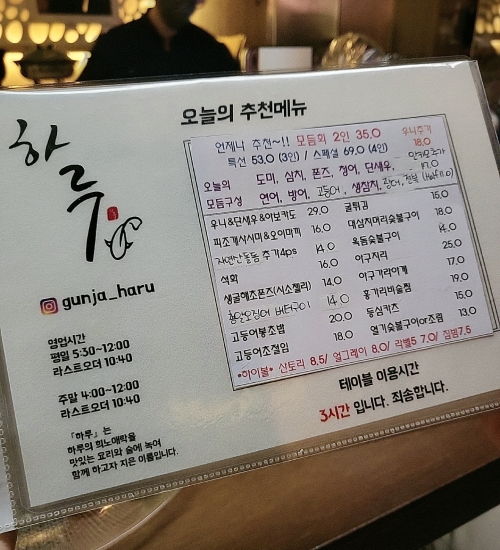 하루
gunja_haru
영업시간
평일 5:30~12:00
라스트오더 10:40
주말 4:00~12:00
라스트오더 10:40
「하루」는
하루의 희노애락을
맛있는 요리와 술에 녹여
함께 하고자 지은 이름입니다.
오늘의 추천메뉴
언제나 추천~!! 모듬회 2인 35.0
특선 53.0 (3인) / 스페셜 69.0 (4인)
우니추가
18.0
오늘의
모듬구성
도미, 삼치, 폰즈, 청어, 단새우,
연어, 방어, 고등어, 생참치,
17.0
우니&단새우&아보카도 29.0
피조개사시미&오이마끼 16.0
자연산돌돔 추가4ps 14.0
석화 16.0
생굴해초폰즈(시소젤리) 14.0
버터구이 14.0
고등어봉초밥 20.0
고등어초절임 18.0
굴튀김 15.0
대삼치머리숯불구이 18.0
옥돔숯불구이 14.0
아구지리 25.0
아구가라아게 17.0
홍가리비술찜 19.0
등심카츠 15.0
열기숯불구이or조림 13.0
*하이볼* 산토리 8.5/ 얼그레이 8.0/ 라벨5 7.0/ 짐빔7.5
테이블 이용시간
3시간 입니다. 죄송합니다.